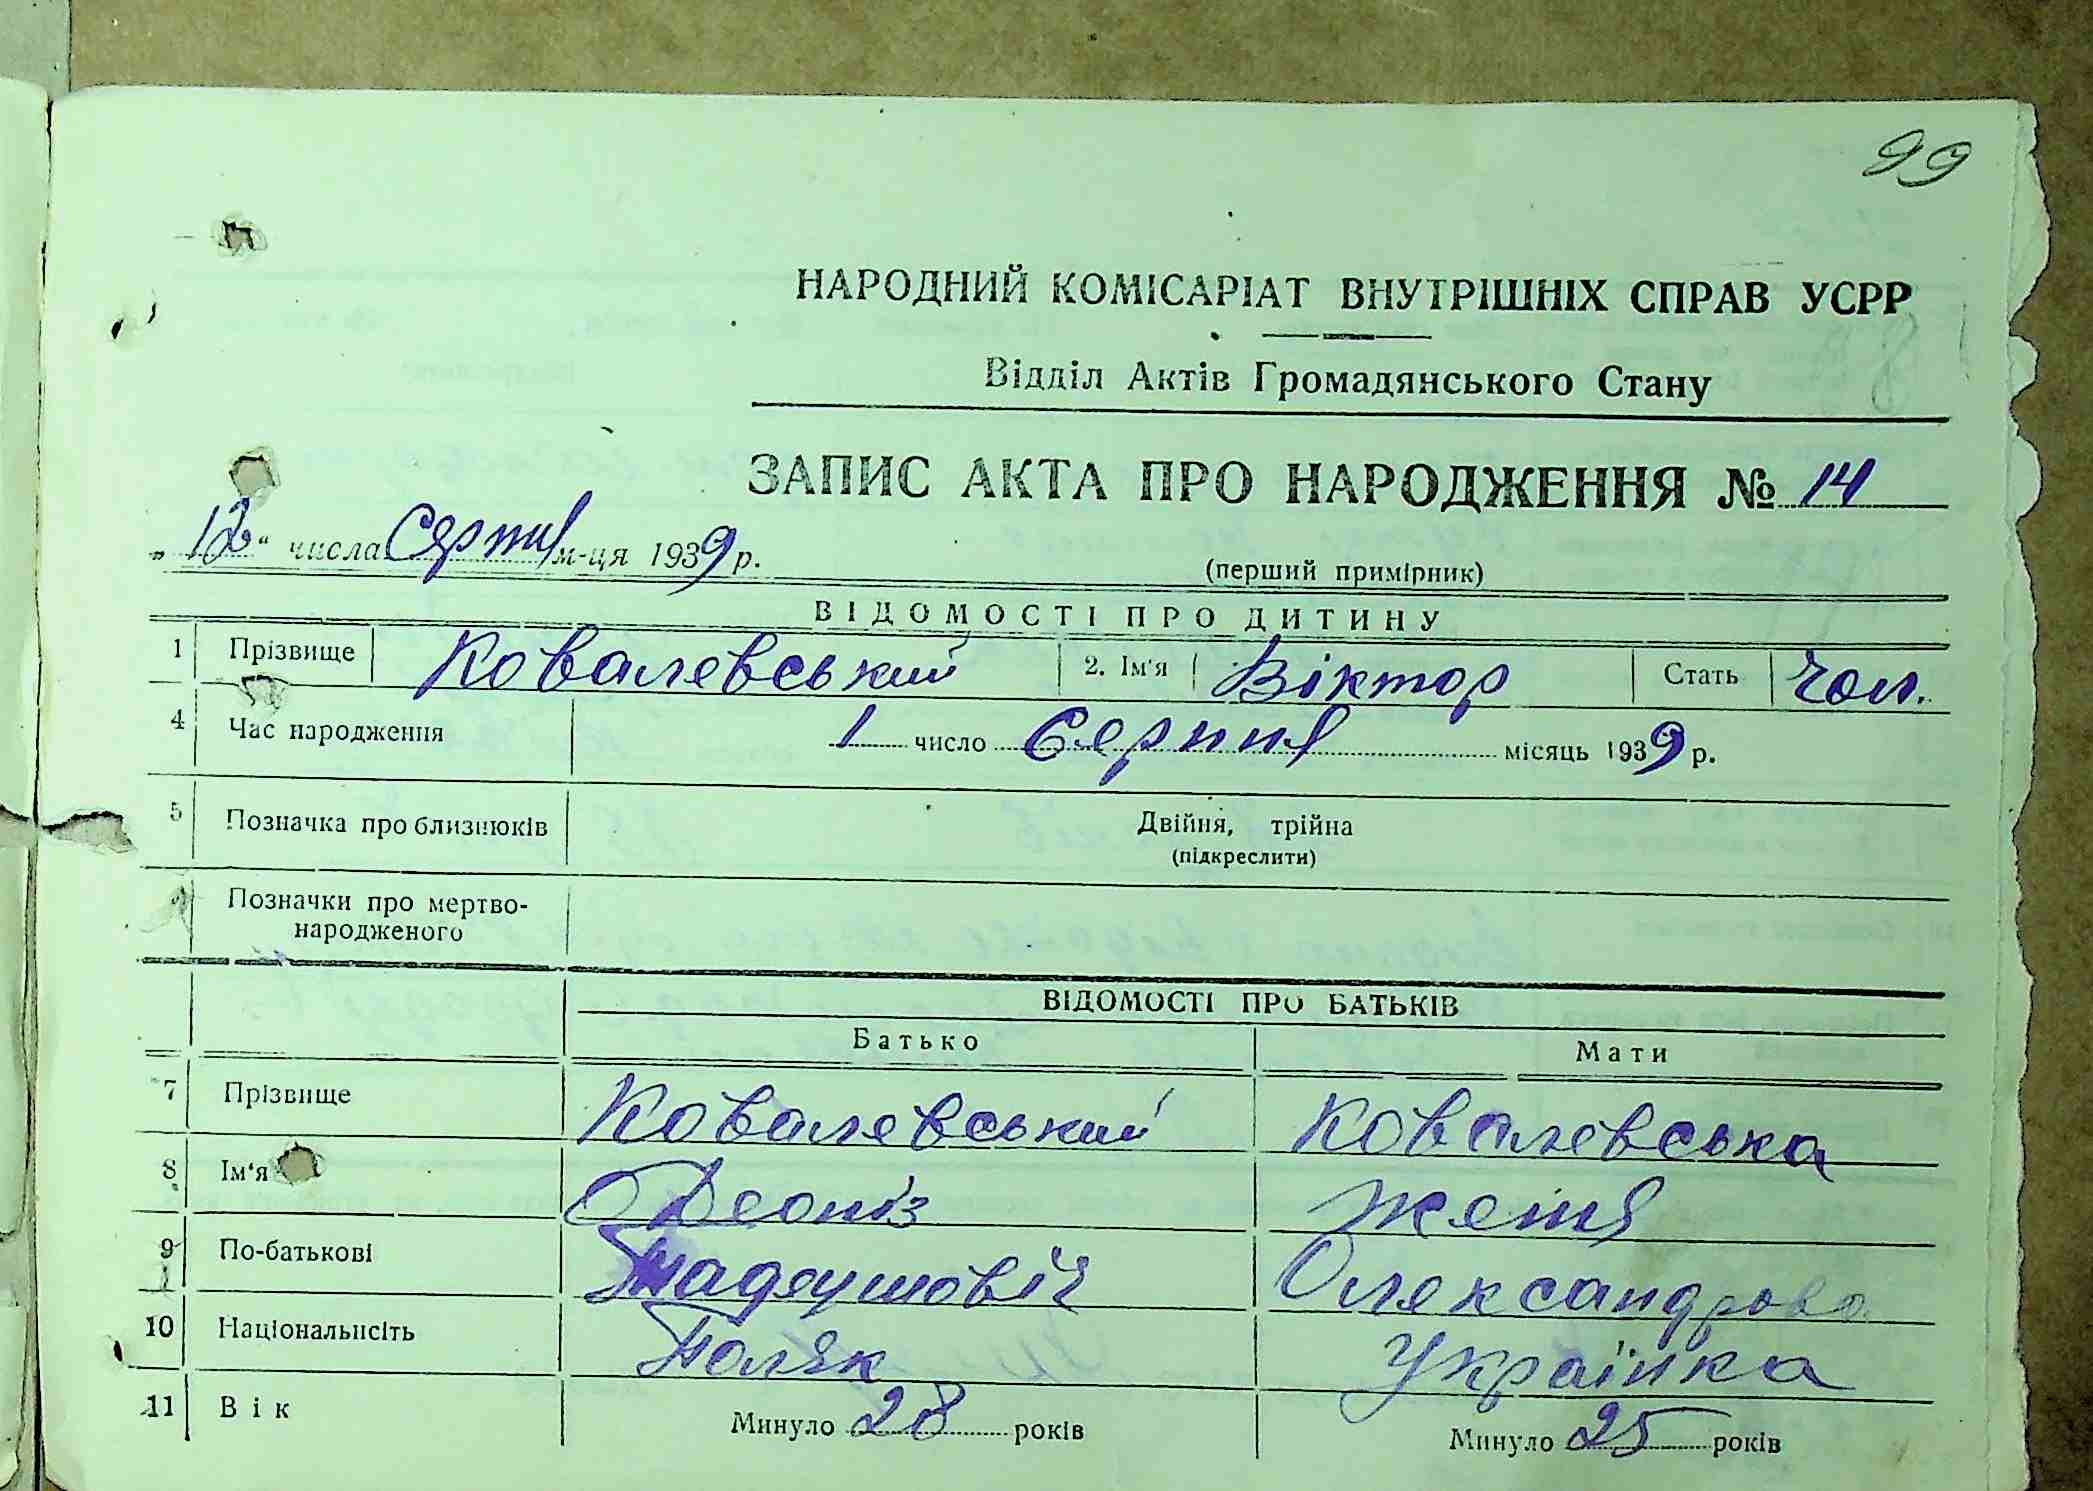 99
НАРОДНИЙ КОМІСАРІАТ ВНУТРІШНІХ СПРАВ УСРР
Відділ Актів Громадянського Стану
ЗАПИС АКТА ПРО НАРОДЖЕННЯ № 14
„12“ числа Серпня м-ця 1939 р.
(перший примірник)
ВІДОМОСТІ ПРО ДИТИНУ
1 Прізвище Ковалевський 2. Ім'я Віктор Стать Чол.
4 Час народження 1 число Серпня місяць 1939 р.
5 Позначка про близнюків Двійня, трійна
(підкреслити)
Позначки про мертво-
народженого
ВІДОМОСТІ ПРО БАТЬКІВ
Батько Мати
7 Прізвище Ковалевський Ковалевська
8 Ім'я Деоніз Женя
9 По-батькові Тадеушовіч Олександрова
10 Національність Поляк Українка
11 Вік Минуло 28 років Минуло 25 років